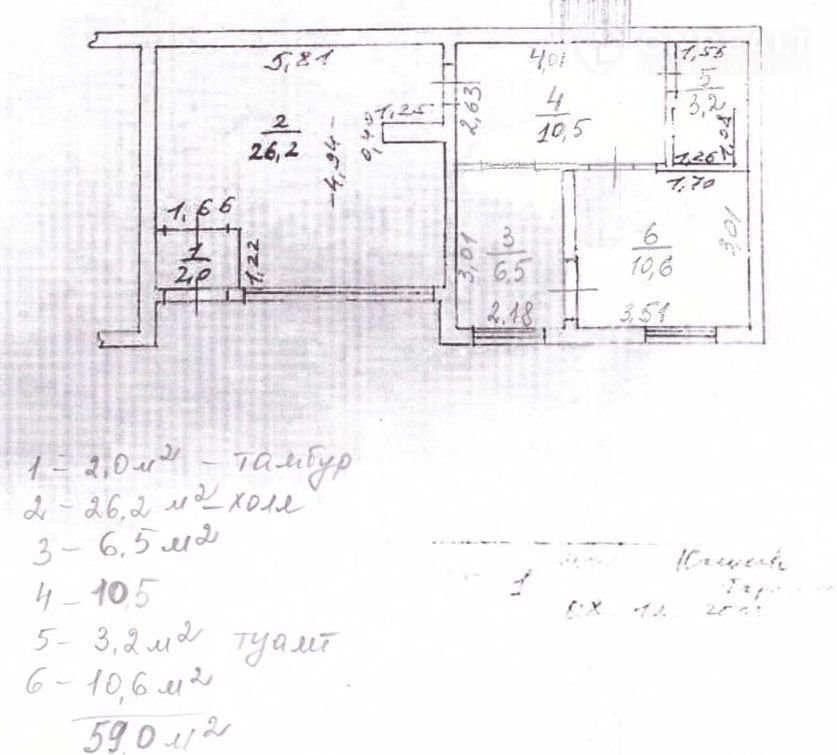 5,81
4,01
1,55
5
3,2
2,63
4
10,5
1,25
0,40
2
26,2
4,94
1,08
1,26
1,70
1,66
1
2,0
1,22
3,01
3
6,5
6
10,6
3,01
2,18
3,51
1 - 2,0 м² - тамбур
2 - 26,2 м² - холл
3 - 6,5 м²
4 - 10,5
5 - 3,2 м² туалет
6 - 10,6 м²
59,0 м²
1